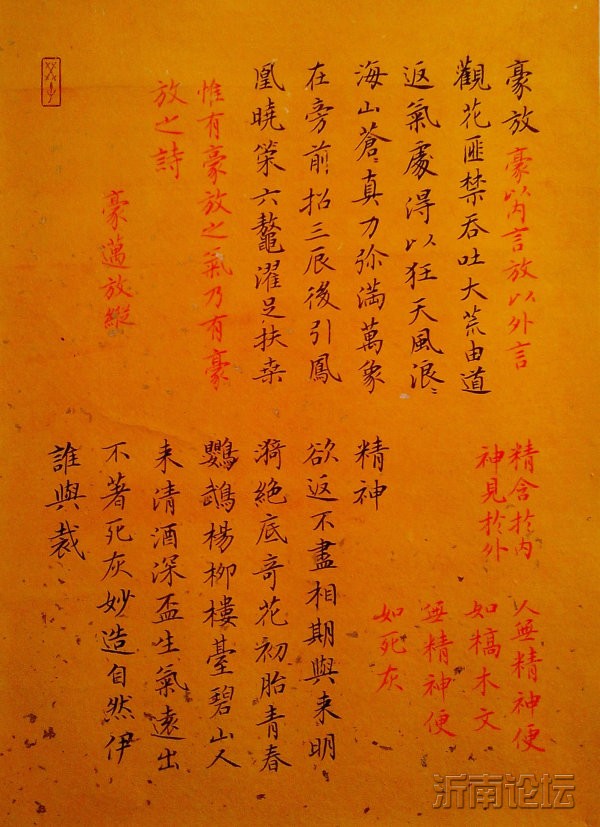 豪放 豪以內言放以外言
觀花匪禁吞吐大荒由道
返氣處得以狂天風浪〻
海山蒼〻真力弥滿萬象
在旁前招三辰後引鳳
凰曉策六鼇濯足扶桒
惟有豪放之氣乃有豪
放之詩
豪邁放縱
精含於內
神見於外
人無精神便
如槁木文
無精神便
如死灰
精神
欲返不盡相期與来明
漪絶底竒花初胎青春
鸚鵡楊柳樓臺碧山人
来清酒深盃生氣遠出
不著死灰妙造自然伊
誰與裁
沂南论坛